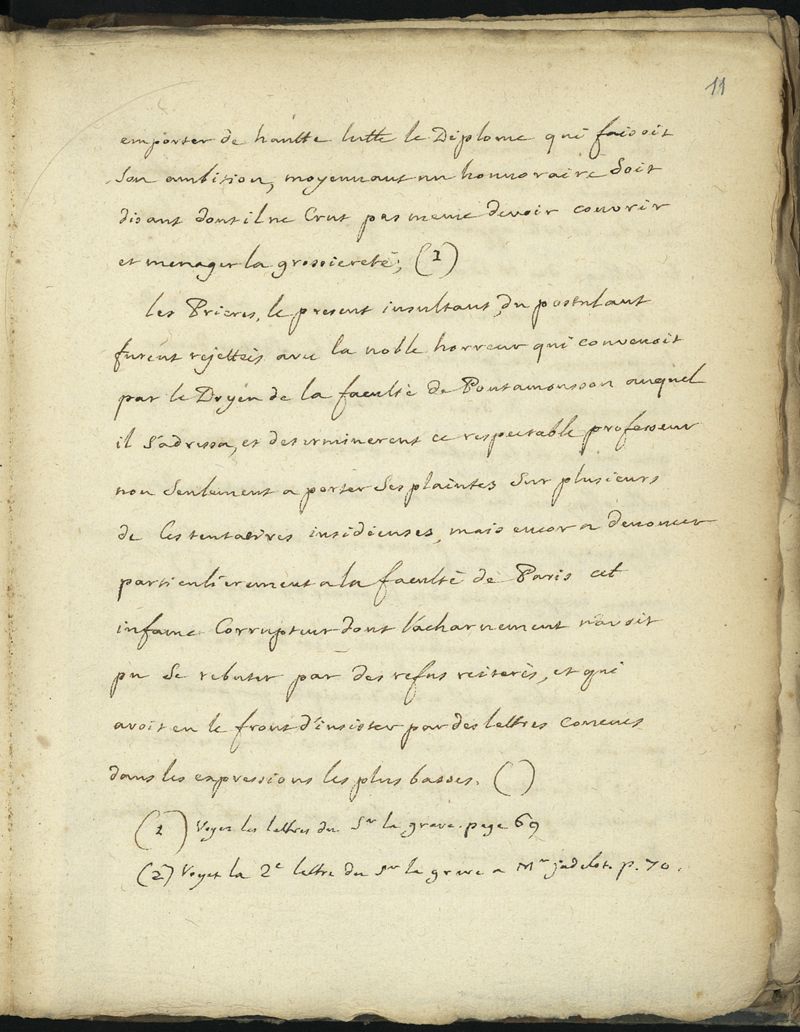 11
emporter de hautte lutte le Diplome qui faisoit
son ambition, moyennant un honnoraire soit
disant dont il ne Crut pas meme devoir couvrir
et menager la grossiereté; (1)
les Prieres, le present insultant, du postulant
furent rejetteés avec la noble horreur qui convenoit
par le Doyen de la faculté de Pontamousson auquel
il s'adressa, et determinerent ce respectable professeur
non seulement a porter ses plaintes sur plusieurs
de ces tentatives insidieuses, mais encor a denoncer
particulierement a la faculté de Paris cet
infame Corrupteur dont l'acharnement n'avoit
pu se rebuter par des refus reiterés, et qui
avoit eu le front d'insister par des lettres concues
dans les expressions les plus basses. ()
(1) Voyez les lettres du Sr la grave. page 69
(2) Voyez la 2e lettre du sr la grave a Mr jadelot. p. 70.